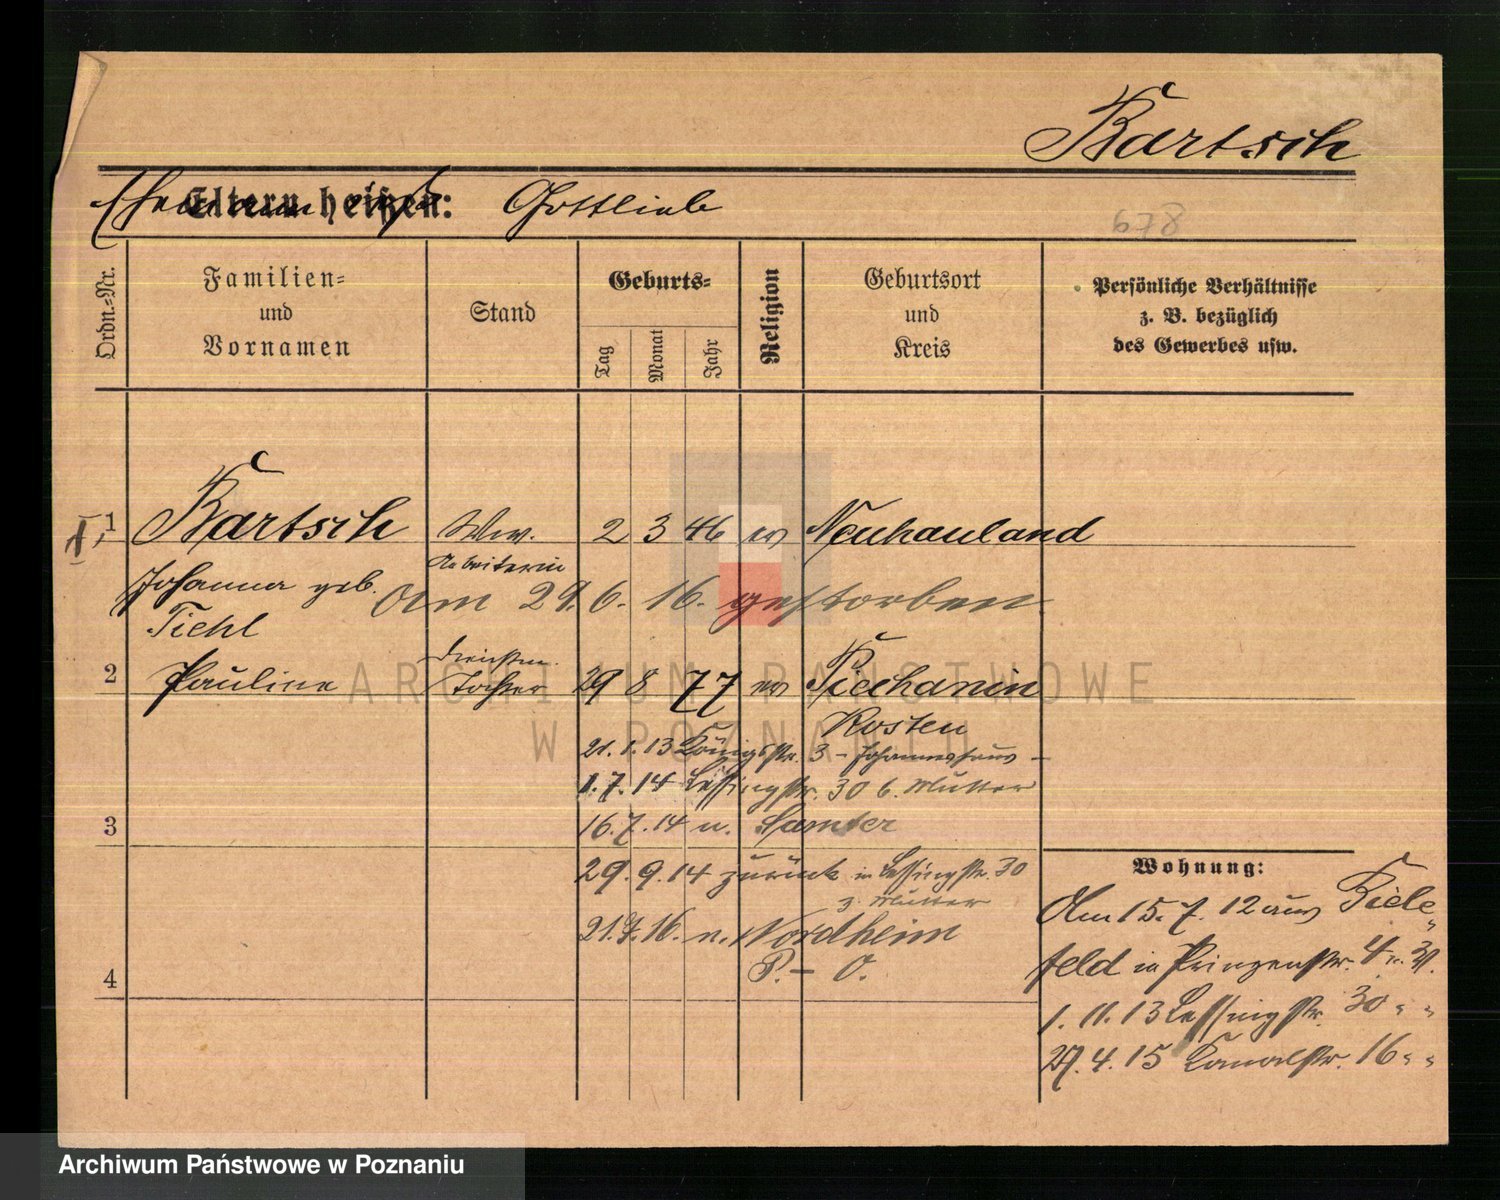 Bartsch
Eltern heißen: Gottlieb
678
Ordn.-Nr.
Familien-
und
Vornamen
Stand
Geburts-
Tag
Monat
Jahr
Religion
Geburtsort
und
Kreis
Persönliche Verhältnisse
z. B. bezüglich
des Gewerbes usw.
1 Bartsch Ww. 2 3 46 ev Neuhauland
Arbeiterin
Johanna geb.
Am 29. 6. 16. gestorben.
Tiehl
2 Pauline Tochter 29 8 77 ev Piechanin
Kosten
21. 1. 13 Königstr. 3 - Johanneshaus -
1. 7. 14 Lessingstr. 30 b. Mutter
3 16. 7. 14 n. Samter
29. 9. 14 zurück in Lessingstr. 30
z. Mutter
21. 7. 16. n. Nordheim
P. - O.
4
Wohnung:
Am 15. 7. 12 aus Biele-
feld in Prinzenstr. 4
1. 11. 13 Lessingstr. 30 " "
27. 4. 15 Kanalstr. 16 " "
ARCHIWUM PAŃSTWOWE
W POZNANIU
Archiwum Państwowe w Poznaniu